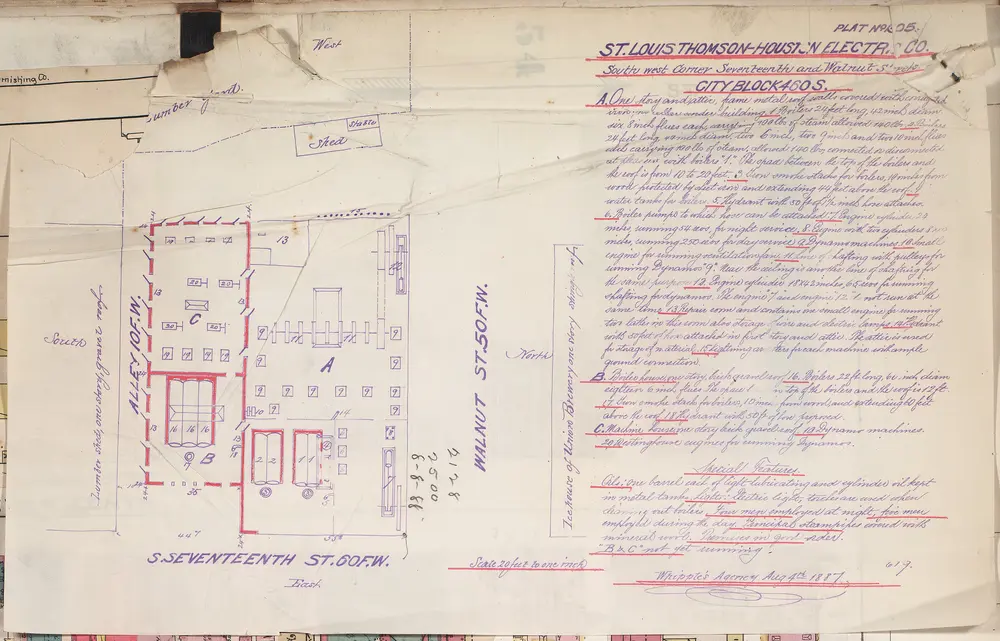 PLAT No. 605.
ST. LOUIS THOMSON-HOUSTON ELECTRIC CO.
South west Corner Seventeenth and Walnut Streets.
CITY BLOCK 460 S.
A. One story and attic, frame metal roof walls covered with corrugated
iron, no cellar under building. 1. Boilers 24 feet long, 42 inch diam.
six 8 inch flues each carrying 100 lbs of steam allowed 120 lbs. 2. Boilers
24 feet long, 42 inch diam., two 6 inch, two 9 inch and two 10 inch flues
each carrying 100 lbs of steam, allowed 120 lbs, connected or disconnected
at pleasure with boilers "1". The space between the top of the boilers and
the roof is from 10 to 20 feet. 3. Iron smoke stacks for boilers, 14 inches from
wood protected by sheet iron and extending 44 feet above the roof. 4.
water tanks for boilers. 5. Hydrant with 50 feet of 1½ inch hose attached.
6. Boiler pumps to which hose can be attached. 7. Engine cylinder 24
inches, running 54 revs. for night service. 8. Engine with two cylinders 8 in.
inches, running 250 revs for day service. 9. Dynamo machines. 10. Small
engine for running ventilation fan. 11. Line of shafting with pulleys for
running Dynamos "9". Near the ceiling is another line of shafting for
the same purpose. 12. Engine cylinder 18x42 inches 65 revs for running
shafting for dynamos. The engine "7" and engine 12 do not run at the
same time. 13. Repair room and contains one small engine for running
two lathes in this room also storage of wire and electric lamps. 14. Hydrant
with 50 feet of hose attached in first story and attic. The attic is used
for storage of material. 15. Lightning arresters each machine with ample
ground connection.
B. Boiler house one story, brick gravel roof. 16. Boilers, 22 feet long, 60 inch diam.
eighteen 6 inch flues. The space between top of the boilers and the roof is 12 ft.
17. Iron smoke stack for boilers, 10 inches from wood and extending 60 feet
above the roof. 18. Hydrant with 50 ft of hose proposed.
C. Machine house one story, brick gravel roof. 19. Dynamo machines.
20. Westinghouse engines for running Dynamos.
Special Features
Oils: One barrel each of light lubricating and cylinder oil kept
in metal tanks. Light: Electric light, torches are used when
cleaning out boilers. Four men employed at night, five men
employed during the day. Principal steam pipes covered with
mineral wool. Premises in good order.
"B & C" not yet running.
Whipple's Agency Aug 4th 1887.
619.
rnishing Co.
Lumber yard.
West
Shed
Stable
15
13
South
Lumber shed, one story, gravel roof
ALLEY 10 F.W.
C
19
20
A
9
11
12
10
14
16 16 16
17
B
18
2 2
1 1
3
WALNUT ST. 50 F.W.
North
Icehouse of Union Brewery one story shingle roof
2128
2500
8-8-88
S. SEVENTEENTH ST. 60 F.W.
East
Scale 20 feet to one inch